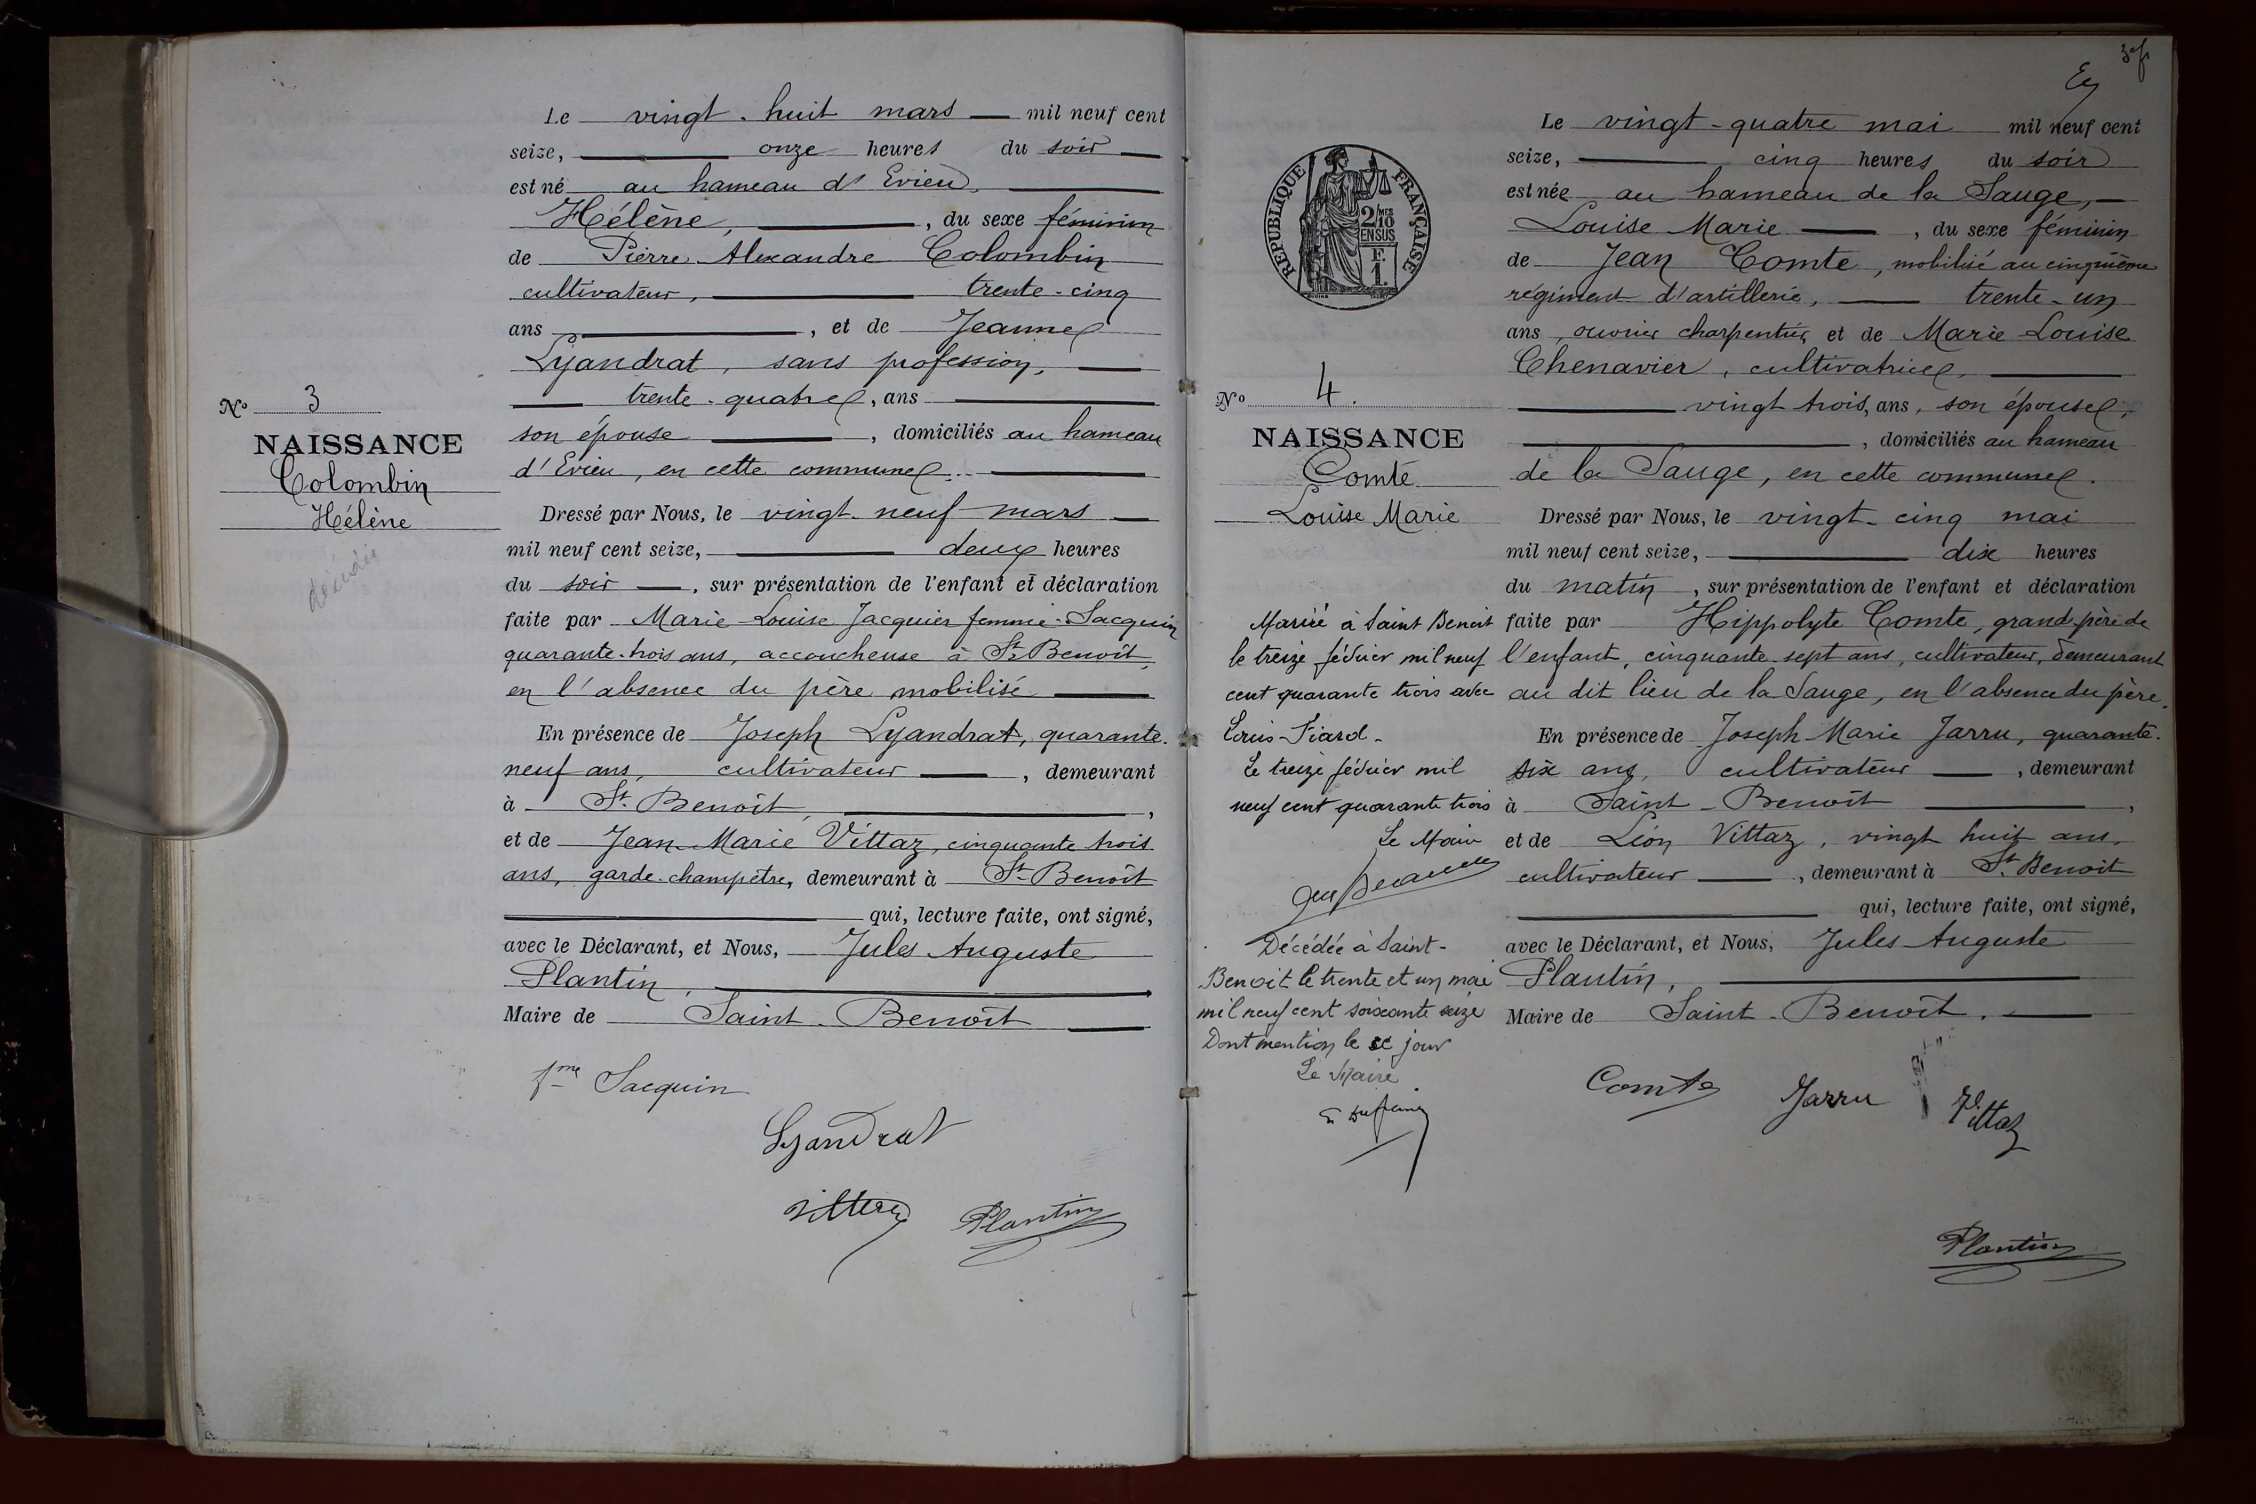 Le vingt-huit mars mil neuf cent
seize, onze heures du soir
est né au hameau d'Evieu,
Hélène, , du sexe féminin
de Pierre Alexandre Colombin
cultivateur, trente-cinq
ans , et de Jeanne
Lyandrat, sans profession,
trente-quatre, ans
son épouse , domiciliés au hameau
d'Evieu, en cette commune.
No 3
NAISSANCE
Colombin
Hélène
décédée
Dressé par Nous, le vingt-neuf mars
mil neuf cent seize, deux heures
du soir , sur présentation de l'enfant et déclaration
faite par Marie-Louise Jacquier femme Sacquin
quarante-trois ans, accoucheuse à St-Benoît,
en l'absence du père mobilisé
En présence de Joseph Lyandrat, quarante-
neuf ans, cultivateur , demeurant
à St-Benoît, ,
et de Jean-Marie Vittaz, cinquante trois
ans, garde-champêtre, demeurant à St-Benoît
qui, lecture faite, ont signé,
avec le Déclarant, et Nous, Jules Auguste
Plantin,
Maire de Saint-Benoît
fme Sacquin
Lyandrat
Vittaz Plantin
3e f
RÉPUBLIQUE FRANÇAISE
2/10 MES
EN SUS
F.
1.
Le vingt-quatre mai mil neuf cent
seize, cinq heures du soir
est née au hameau de la Sauge,
Louise Marie , du sexe féminin
de Jean Comte, mobilisé au cinquième
régiment d'artillerie, trente-un
ans, ouvrier charpentier, et de Marie-Louise
Chenavier, cultivatrice,
vingt trois, ans, son épouse,
, domiciliés au hameau
de la Sauge, en cette commune.
No 4.
NAISSANCE
Comte
Louise Marie
Dressé par Nous, le vingt-cinq mai
mil neuf cent seize, dix heures
du matin , sur présentation de l'enfant et déclaration
faite par Hippolyte Comte, grand-père de
l'enfant, cinquante-sept ans, cultivateur, demeurant
au dit lieu de la Sauge, en l'absence du père.
En présence de Joseph-Marie Jarru, quarante-
six ans, cultivateur , demeurant
à Saint-Benoît ,
et de Léon Vittaz, vingt huit ans,
cultivateur , demeurant à St. Benoit
qui, lecture faite, ont signé,
avec le Déclarant, et Nous, Jules Auguste
Plantin,
Maire de Saint-Benoît.
Mariée à Saint Benoit
le treize février mil neuf
cent quarante trois avec
Louis Fiard-
Le treize février mil
neuf cent quarante trois
Le Maire
Décédée à Saint-
Benoit le trente et un mai
mil neuf cent soixante seize
Dont mention le ce jour
Le Maire
Comte Jarru Vittaz
Plantin